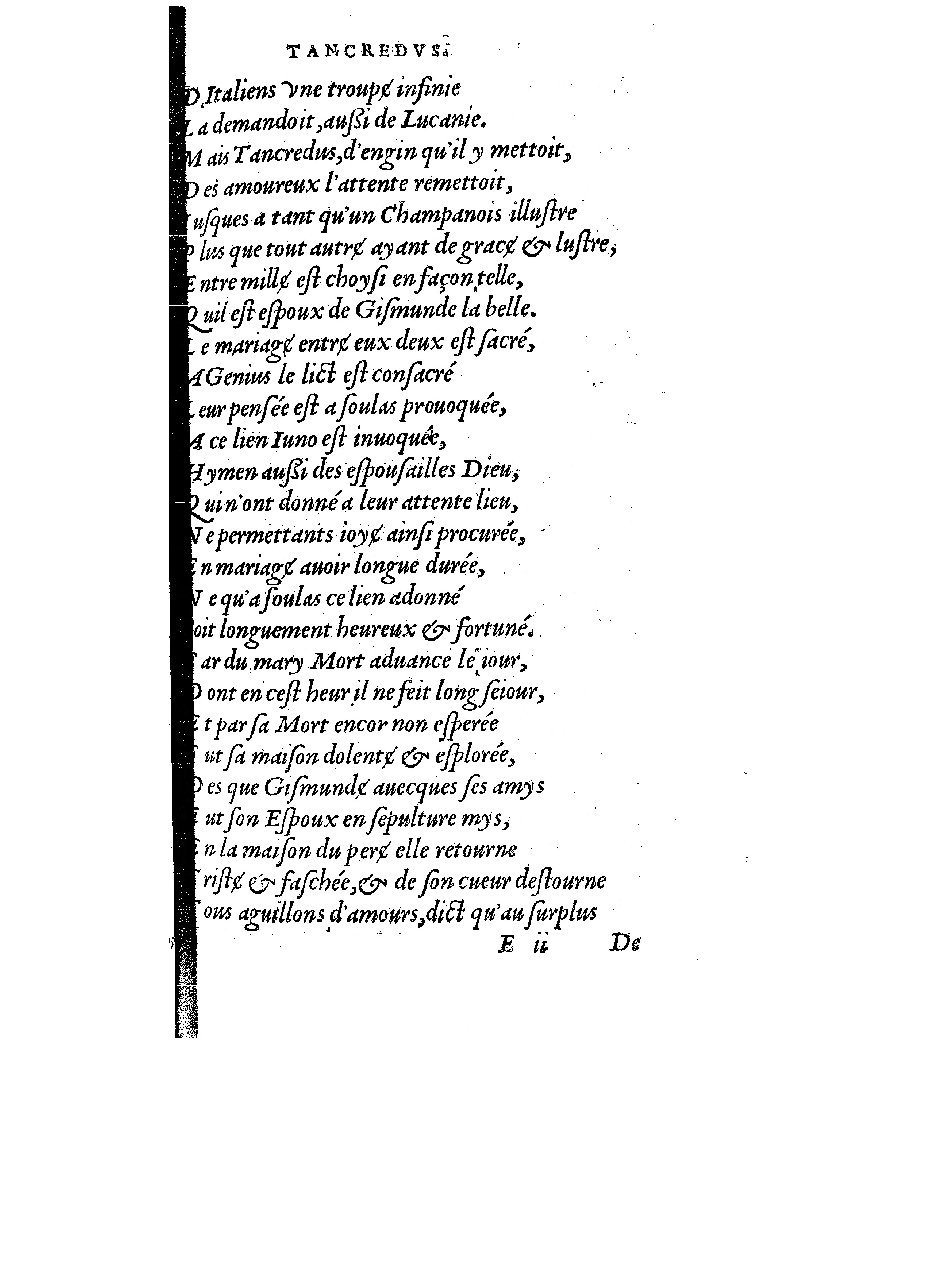 TANCREDVS.
D Italiens vne troupȩ infinie
La demandoit, außi de Lucanie.
Mais Tancredus, d'engin qu'il y mettoit,
Des amoureux l'attente remettoit,
Iuſques a tant qu'un Champanois illuſtre
Plus que tout autrȩ ayant de gracȩ & luſtre,
Entre millȩ eſt choyſi en façon telle,
Quil eſt eſpoux de Giſmunde la belle.
Le mariagȩ entrȩ eux deux eſt ſacré,
A Genius le lict eſt conſacré
Leur penſée eſt a ſoulas prouoquée,
A ce lien Iuno eſt inuoquée,
Hymen außi des eſpouſailles Dieu,
Qui n'ont donné a leur attente lieu,
Ne permettants ioyȩ ainſi procurée,
En mariagȩ auoir longue durée,
Ne qu'a ſoulas ce lien adonné
Soit longuement heureux & fortuné.
Car du mary Mort aduance le iour,
Dont en ceſt heur il ne feit long ſeiour,
Et par ſa Mort encor non eſperée
Fut ſa maiſon dolentȩ & eſplorée,
Des que Giſmundȩ auecques ſes amys
Eut ſon Eſpoux en ſepulture mys,
En la maiſon du perȩ elle retourne
Triſtȩ & faſchée, & de ſon cueur deſtourne
Tous aguillons d'amours, dict qu'au ſurplus
E ii De